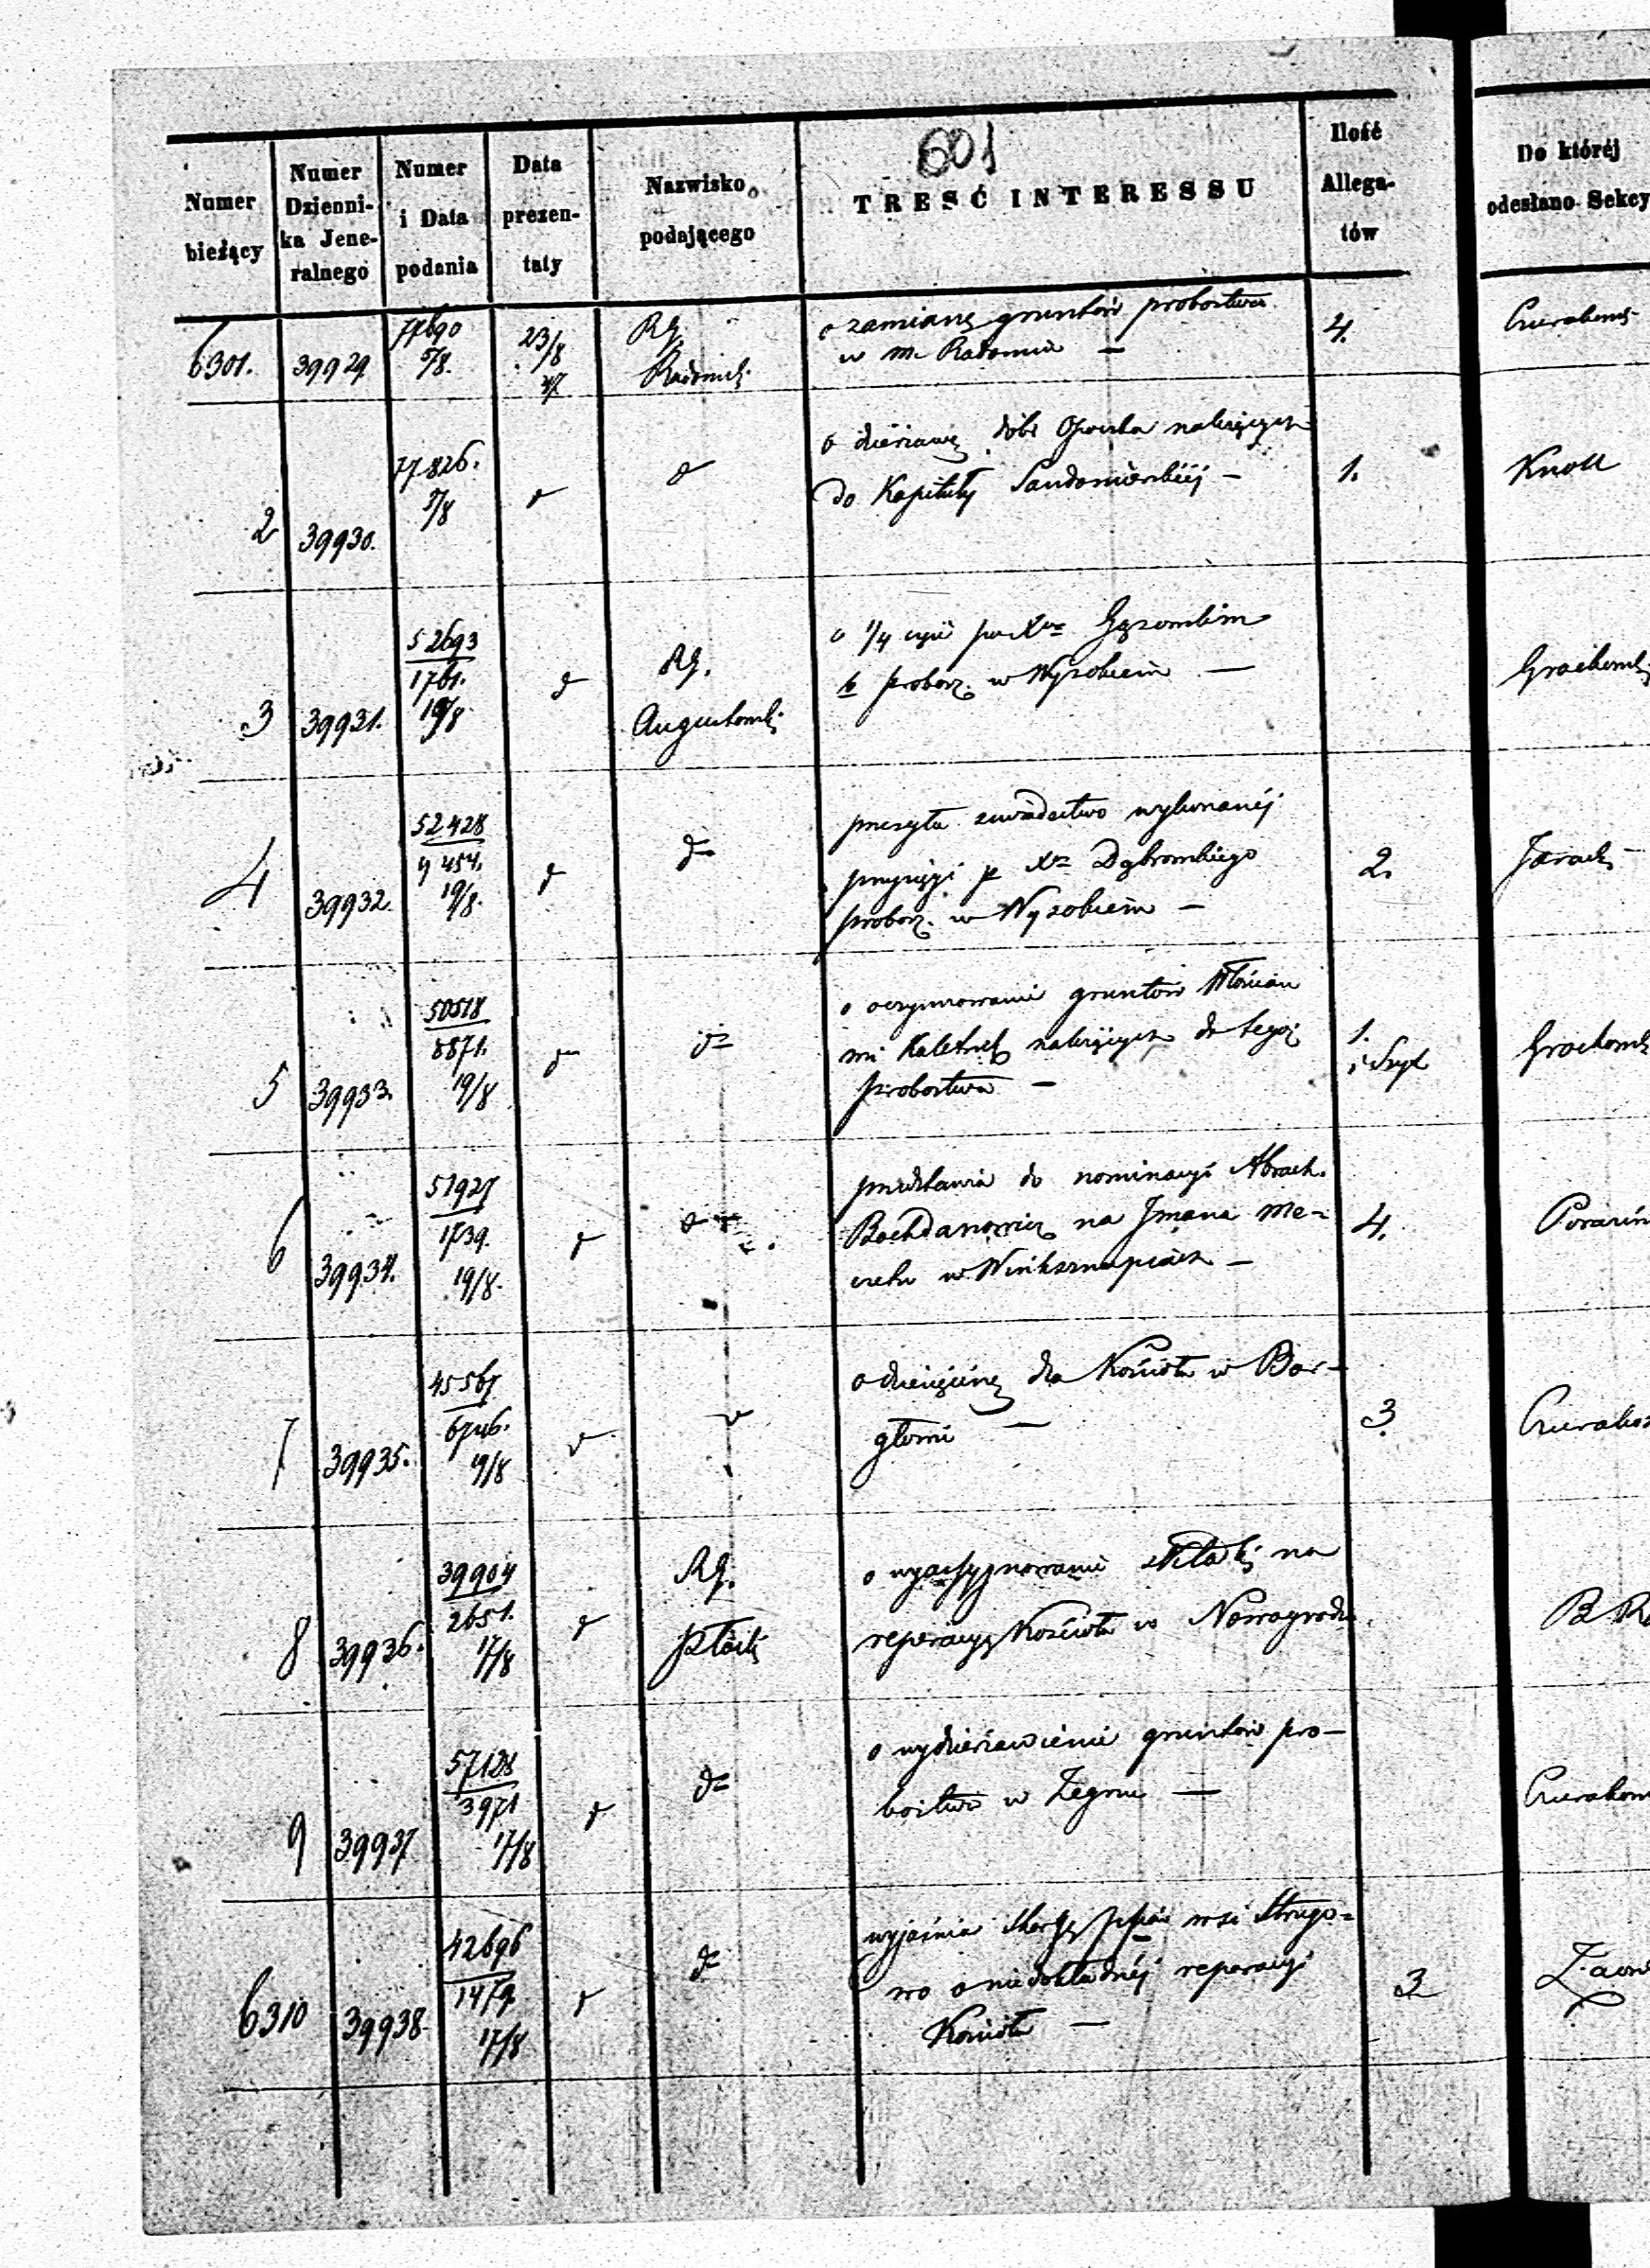 601
Numer bieżący
Numer Dzienni-ka Jene-ralnego
Numer i Data podania
Data prezen-taty
Nazwisko podającego
TRESĆ INTERESSU
Ilość Allega-tów
Do któréj odesłano Sekcy
6301. 39929. 77690 5/8. 23/8 RG. Radomsk.
o zamianę gruntów probostwa
w m. Radomiu — 4.
2 39930. 77826. 5/8
o dzierżawę dóbr należących
do Kapituły Sandomierskiéj — 1. Knoll
3 39931. 52693 1761. 19/8 RG. Augustowsk.
o 1/4 części po Xdzu
b. probosz. w Wysokiem —
4 39932. 52428 19/8. do
przesyła świadectwo wykonanéj
przysięgi p. Xdza Dąbrowskiego
probosz. w Wysokiem — 2.
5 39933. 50518 8871. 19/8 do
o oczynszowanie gruntów Włościan
wsi Kaletnik należących do tegoż
probostwa — 1.
6 39934. 51927 1739. 19/8.
przedstawia do nominacyi Abrach.
Bochdanowicz na Jmana Me-
czetu w Winksznupiach — 4.
7 39935. 45567 6746. 19/8
o dziesięcinę dla Kościoła w Bar-
głowie — 3
8 39936. 39904 2651. 17/8 RG. Płock.
o wyassygnowanie składki na
reperacyę Kościoła w Nowogrodzie
9 39937 57128 3971 17/8 do
o wydzierżawienie gruntów pro-
bostwa w Zegrzu —
6310 39938 42696 1479. 17/8 do
wyjaśnia skargę wsi Strugo-
wo o niedokładnéj reperacyi
Kościoła — 3